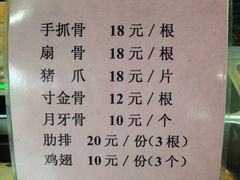 手抓骨 18 元 / 根
扇 骨 18 元 / 根
猪 爪 18 元 / 片
寸金骨 12 元 / 根
月牙骨 10 元 / 个
肋排 20 元 / 份(3 根)
鸡翅 10 元 / 份(3 个)